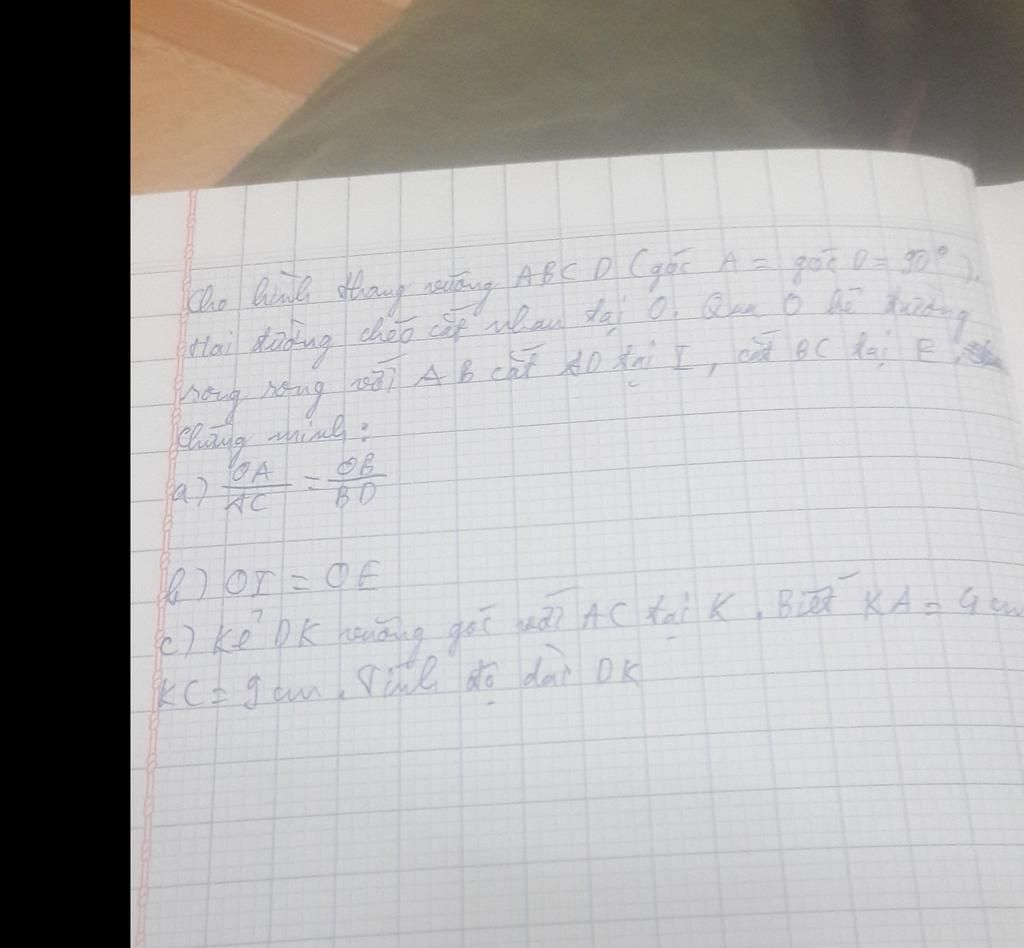 Cho hình thang vuông ABCD (góc A = góc D = 90°).
Hai đường chéo cắt nhau tại O. Qua O kẻ đường
song song với AB cắt AD tại I, cắt BC tại E.
Chứng minh:
a) OA/AC = OB/BD
b) OI = OE
c) Kẻ DK vuông góc với AC tại K. Biết KA = 4 cm
KC = 9 cm. Tính độ dài DK